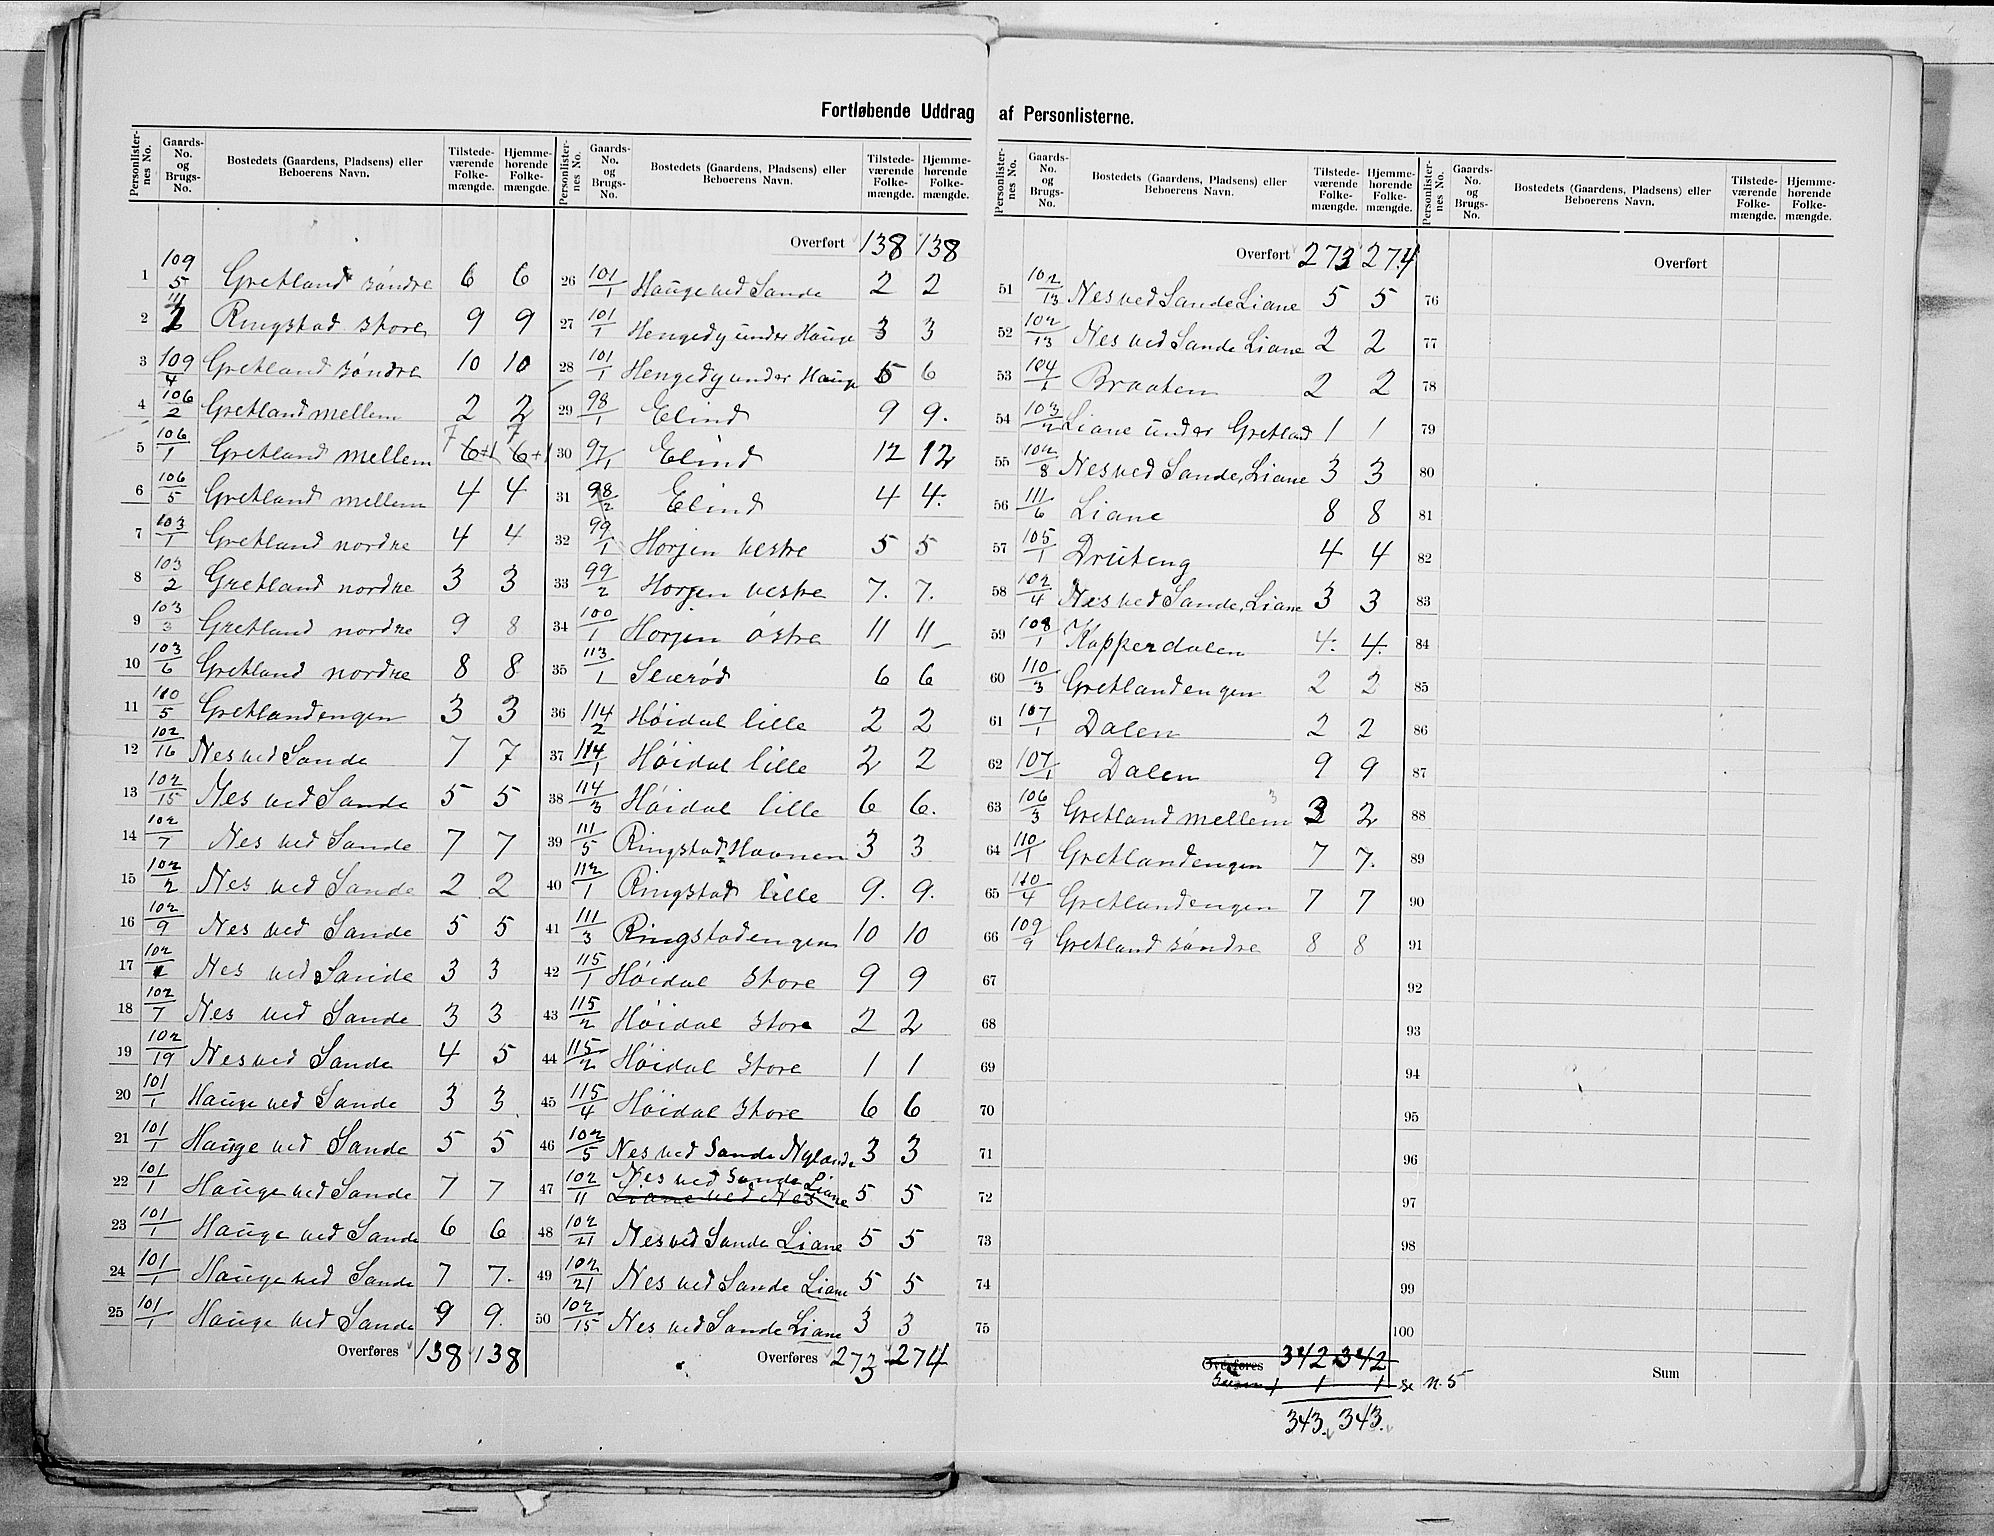 Fortløbende Uddrag af Personlisterne.
Personlister-nes No. | Gaards-No. og Brugs-No. | Bostedets (Gaardens, Pladsens) eller Beboerens Navn. | Tilstede-værende Folke-mængde. | Hjemme-hørende Folke-mængde.
1 109/5 Gretland søndre 6 6
2 Ringstad store 9 9
3 109/4 Gretland søndre 10 10
4 106/2 Gretland mellem 2 2
5 106/1 Gretland mellem 7 6+1 7 6+1
6 106/5 Gretland mellem 4 4
7 103/1 Gretland nordre 4 4
8 103/2 Gretland nordre 3 3
9 103/3 Gretland nordre 9 8
10 103/6 Gretland nordre 8 8
11 110/5 Gretlandengen 3 3
12 102/16 Nes ved Sande 7 7
13 102/15 Nes ved Sande 5 5
14 102/7 Nes ved Sande 7 7
15 102/2 Nes ved Sande 2 2
16 102/9 Nes ved Sande 5 5
17 102 Nes ved Sande 3 3
18 102/7 Nes ved Sande 3 3
19 102/19 Nes ved Sande 4 5
20 101/1 Hauge ved Sande 3 3
21 101/1 Hauge ved Sande 5 5
22 101/1 Hauge ved Sande 7 7
23 101/1 Hauge ved Sande 6 6
24 101/1 Hauge ved Sande 7 7.
25 101/1 Hauge ved Sande 9 9.
Overføres 138 138
Personlister-nes No. | Gaards-No. og Brugs-No. | Bostedets (Gaardens, Pladsens) eller Beboerens Navn. | Tilstede-værende Folke-mængde. | Hjemme-hørende Folke-mængde.
Overført 138 138
26 101/1 Hauge ved Sande 2 2
27 101/1 Hengedy under Hauge 3 3
28 101/1 Hengedy under Hauge 6 6
29 98/1 Elind 9 9.
30 97/1 Elind 12 12
31 98/2 Elind 4 4.
32 99/1 Horjen vestre 5 5
33 99/2 Horjen vestre 7. 7.
34 100/1 Horjen østre 11 11
35 113/1 Skerød 6 6
36 114/2 Høidal lille 2 2
37 114/1 Høidal lille 2 2
38 114/3 Høidal lille 6 6.
39 111/5 Ringstad-Havnen 3 3
40 112/1 Ringstad lille 9. 9.
41 111/3 Ringstadengen 10 10
42 115/1 Høidal store 9 9
43 115/2 Høidal store 2 2
44 115/2 Høidal store 1 1
45 115/4 Høidal store 6 6
46 102/5 Nes ved Sande Nylande 3 3
47 102/11 Nes ved Sande Liane Liane ved Nes 5 5
48 102/21 Nes ved Sande Liane 5 5
49 102/21 Nes ved Sande Liane 5 5
50 102/15 Nes ved Sande Liane 3 3
Overføres 273 274
Personlister-nes No. | Gaards-No. og Brugs-No. | Bostedets (Gaardens, Pladsens) eller Beboerens Navn. | Tilstede-værende Folke-mængde. | Hjemme-hørende Folke-mængde.
Overført 273 274
51 102/13 Nes ved Sande Liane 5 5
52 102/13 Nes ved Sande Liane 2 2
53 104/1 Braaten 2 2
54 103/2 Liane under Gretland 1 1
55 102/8 Nes ved Sande, Liane 3 3
56 111/6 Liane 8 8
57 105/1 Druteng 4 4
58 102/4 Nes ved Sande, Liane 3 3
59 108/1 Kapperdalen 4. 4.
60 110/3 Gretlandengen 2 2
61 107/1 Dalen 2 2
62 107/1 Dalen 9 9
63 106/3 Gretland mellem 3 2 2
64 110/1 Gretlandengen 7 7.
65 110/4 Gretlandengen 7 7
66 109/9 Gretland søndre 8 8
67
68
69
70
71
72
73
74
75
Overføres 342 342
1 1 se n. 5
343. 343.
Personlister-nes No. | Gaards-No. og Brugs-No. | Bostedets (Gaardens, Pladsens) eller Beboerens Navn. | Tilstede-værende Folke-mængde. | Hjemme-hørende Folke-mængde.
Overført
76
77
78
79
80
81
82
83
84
85
86
87
88
89
90
91
92
93
94
95
96
97
98
99
100
Sum